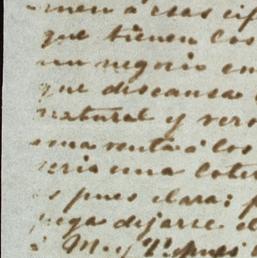 men á esas cif
que tienen los
un negocio en
que descansa
natural y vero
una renta á los
seria una lote
es pues clara:
pega dejarse el